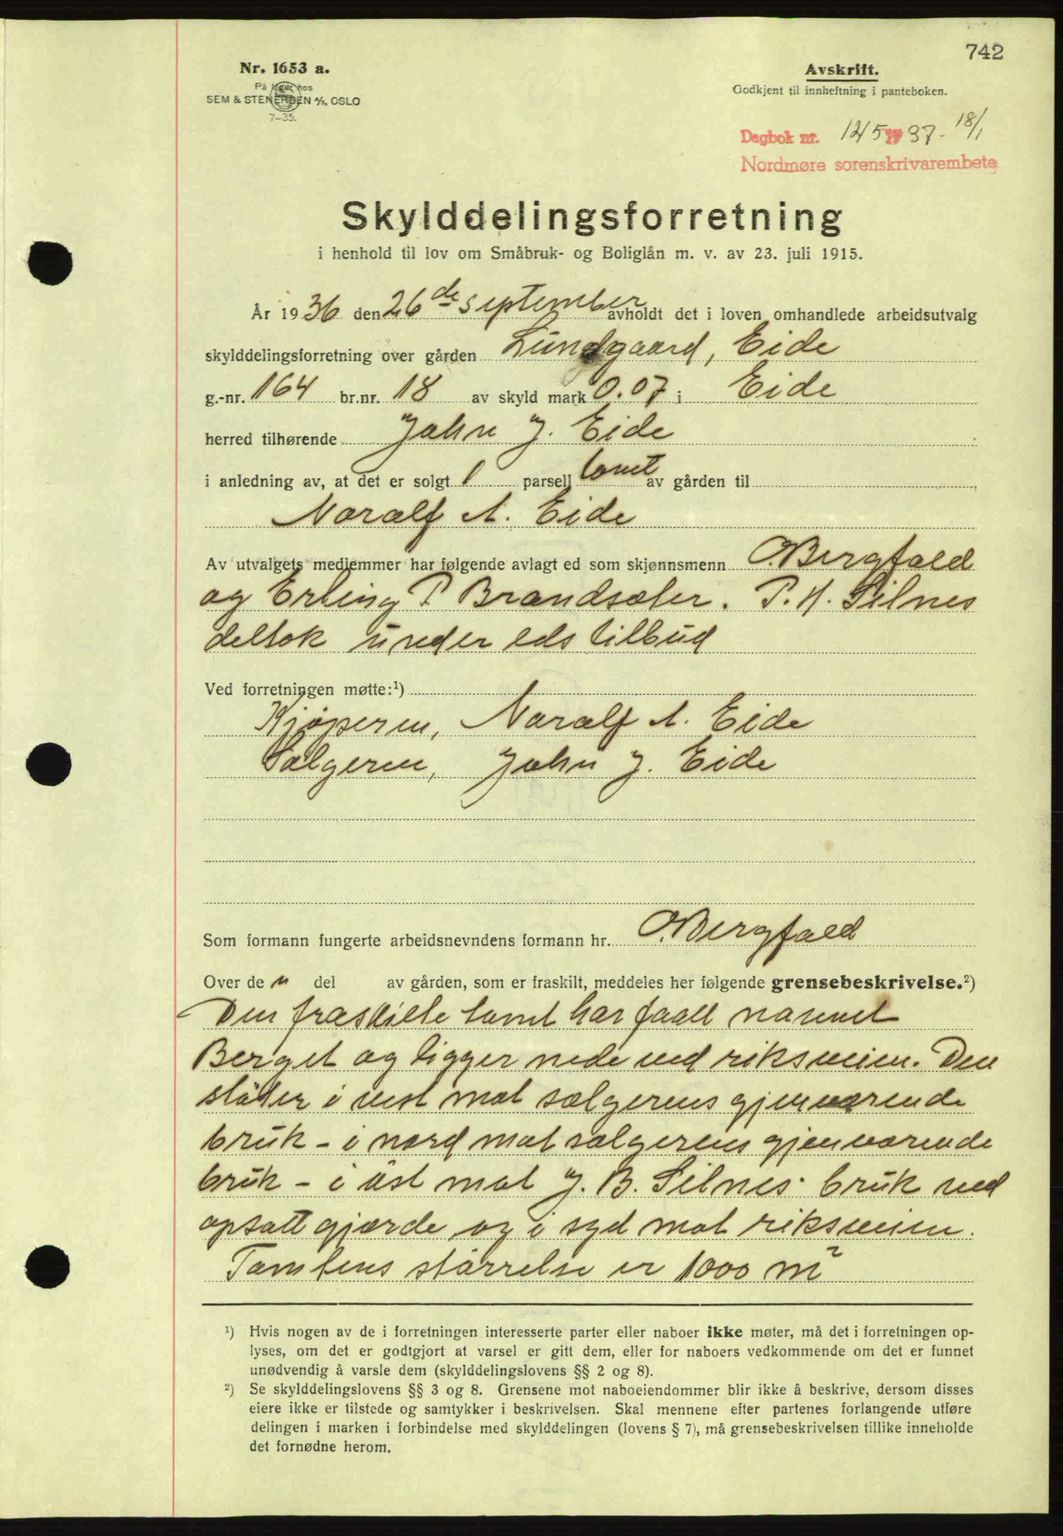 742
Nr. 1653 a.
På lager hos
SEM & STENERSEN A/S, OSLO
7-35.
Avskrift.
Godkjent til innheftning i panteboken.
Dagbok nr. 125 1937 - 18/1
Nordmøre sorenskrivarembete
Skylddelingsforretning
i henhold til lov om Småbruk- og Boliglån m. v. av 23. juli 1915.
År 1936 den 26de september avholdt det i loven omhandlede arbeidsutvalg
skylddelingsforretning over gården Lundgaard, Eide
g.-nr. 164 br.nr. 18 av skyld mark 0.07 i Eide
herred tilhørende John J. Eide
i anledning av, at det er solgt 1 parsell tomt av gården til
Noralf A. Eide
Av utvalgets medlemmer har følgende avlagt ed som skjønnsmenn O. Bergfald
og Erling P. Brandsæter. P. H. Silnes
deltok under eds tilbud
Ved forretningen møtte:¹)
Kjøperen, Noralf A. Eide
Sælgeren, John J. Eide
Som formann fungerte arbeidsnevndens formann hr. O. Bergfald
Over den del av gården, som er fraskilt, meddeles her følgende grensebeskrivelse.²)
Den fraskilte tomt har faatt navnet
Berget og ligger nede ved riksveien. Den
støter i vest mot sælgerens gjenværende
bruk - i nord mot sælgerens gjenværende
bruk - i øst mot J. B. Silnes' bruk ved
opsatt gjærde og i syd mot riksveien.
Tomtens størrelse er 1000 m²
¹) Hvis nogen av de i forretningen interesserte parter eller naboer ikke møter, må det i forretningen op-
lyses, om det er godtgjort at varsel er gitt dem, eller for naboers vedkommende om det er funnet
unødvendig å varsle dem (skylddelingslovens §§ 2 og 8).
²) Se skylddelingslovens §§ 3 og 8. Grensene mot naboeiendommer blir ikke å beskrive, dersom disses
eiere ikke er tilstede og samtykker i beskrivelsen. Skal mennene efter partenes forlangende utføre
delingen i marken i forbindelse med skylddelingen (lovens § 7), må grensebeskrivelsen tillike inneholde
det fornødne herom.